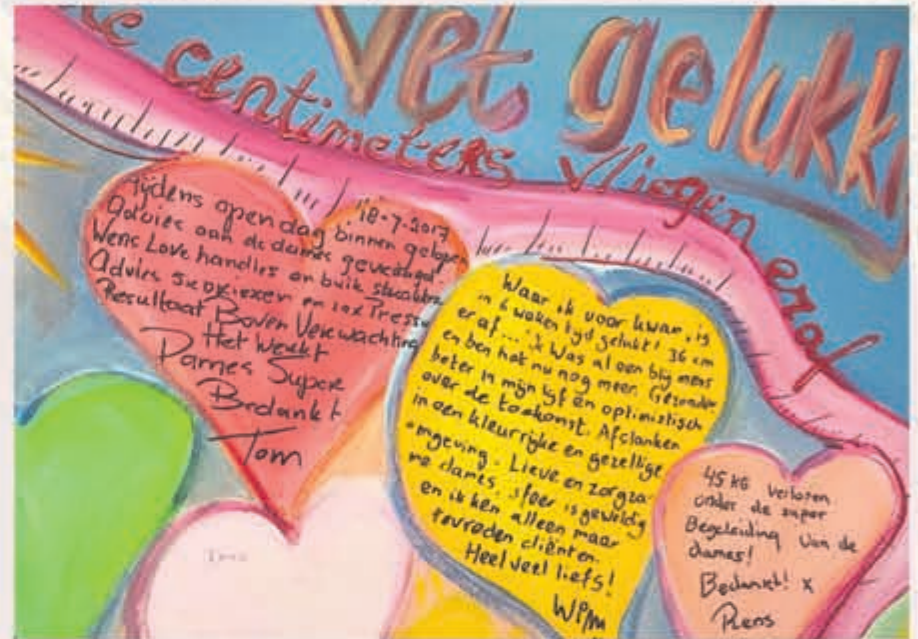 Vet gelukk
de centimeters vliegen eraf
18-7-2017
Tijdens open dag binnen gelopen
Advies aan de dames gevraagd
Wens Love handles en buik
Advies en
Resultaat Boven Verwachting
Het Werkt
Dames Super
Bedankt
Tom
Waar ik voor kwam, is
in 6 weken tijd gelukt! 36 cm
er af.... ik was al een blij mens
en ben het nu nog meer. Gezonder
beter in mijn lijf en optimistisch
over de toekomst. Afslanken
in een kleurrijke en gezellige
omgeving. Lieve en zorgza-
me dames, sfeer is geweldig
en ik ken alleen maar
tevreden cliënten.
Heel veel liefs!
Wim
45 KG verloren
onder de super
Begeleiding van de
dames!
Bedankt! x
Rens